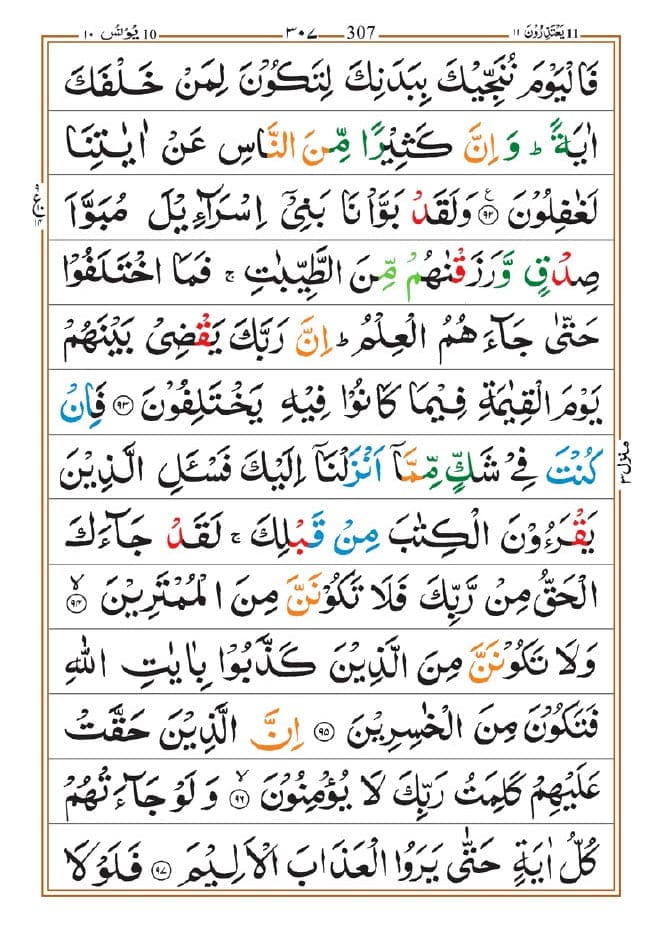 11 یَعْتَذِرُوْنَ ۱۱ 307 ۳۰۷ 10 یُوْنُسَ ۱۰
فَالْیَوْمَ نُنَجِّیْكَ بِبَدَنِكَ لِتَكُوْنَ لِمَنْ خَلْفَكَ
اٰیَةً ؕ وَ اِنَّ كَثِیْرًا مِّنَ النَّاسِ عَنْ اٰیٰتِنَا
لَغٰفِلُوْنَ ۟۹۲ وَلَقَدْ بَوَّاْنَا بَنِیْۤ اِسْرَآءِیْلَ مُبَوَّاَ
صِدْقٍ وَّرَزَقْنٰهُمْ مِّنَ الطَّیِّبٰتِ ۚ فَمَا اخْتَلَفُوْا
حَتّٰی جَآءَ هُمُ الْعِلْمُ ؕ اِنَّ رَبَّكَ یَقْضِیْ بَیْنَهُمْ
یَوْمَ الْقِیٰمَةِ فِیْمَا كَانُوْا فِیْهِ یَخْتَلِفُوْنَ ۹۳ فَاِنْ
كُنْتَ فِیْ شَكٍّ مِّمَّاۤ اَنْزَلْنَاۤ اِلَیْكَ فَسْـَٔلِ الَّذِیْنَ
یَقْرَءُوْنَ الْكِتٰبَ مِنْ قَبْلِكَ ۚ لَقَدْ جَآءَكَ
الْحَقُّ مِنْ رَّبِّكَ فَلَا تَكُوْنَنَّ مِنَ الْمُمْتَرِیْنَ ۙ۹۴
وَلَا تَكُوْنَنَّ مِنَ الَّذِیْنَ كَذَّبُوْا بِاٰیٰتِ اللّٰهِ
فَتَكُوْنَ مِنَ الْخٰسِرِیْنَ ۹۵ اِنَّ الَّذِیْنَ حَقَّتْ
عَلَیْهِمْ كَلِمَتُ رَبِّكَ لَا یُؤْمِنُوْنَ ۙ۹۶ وَ لَوْ جَآءَتْهُمْ
كُلُّ اٰیَةٍ حَتّٰی یَرَوُا الْعَذَابَ الْاَلِیْمَ ۹۷ فَلَوْلَا
منزل ۳